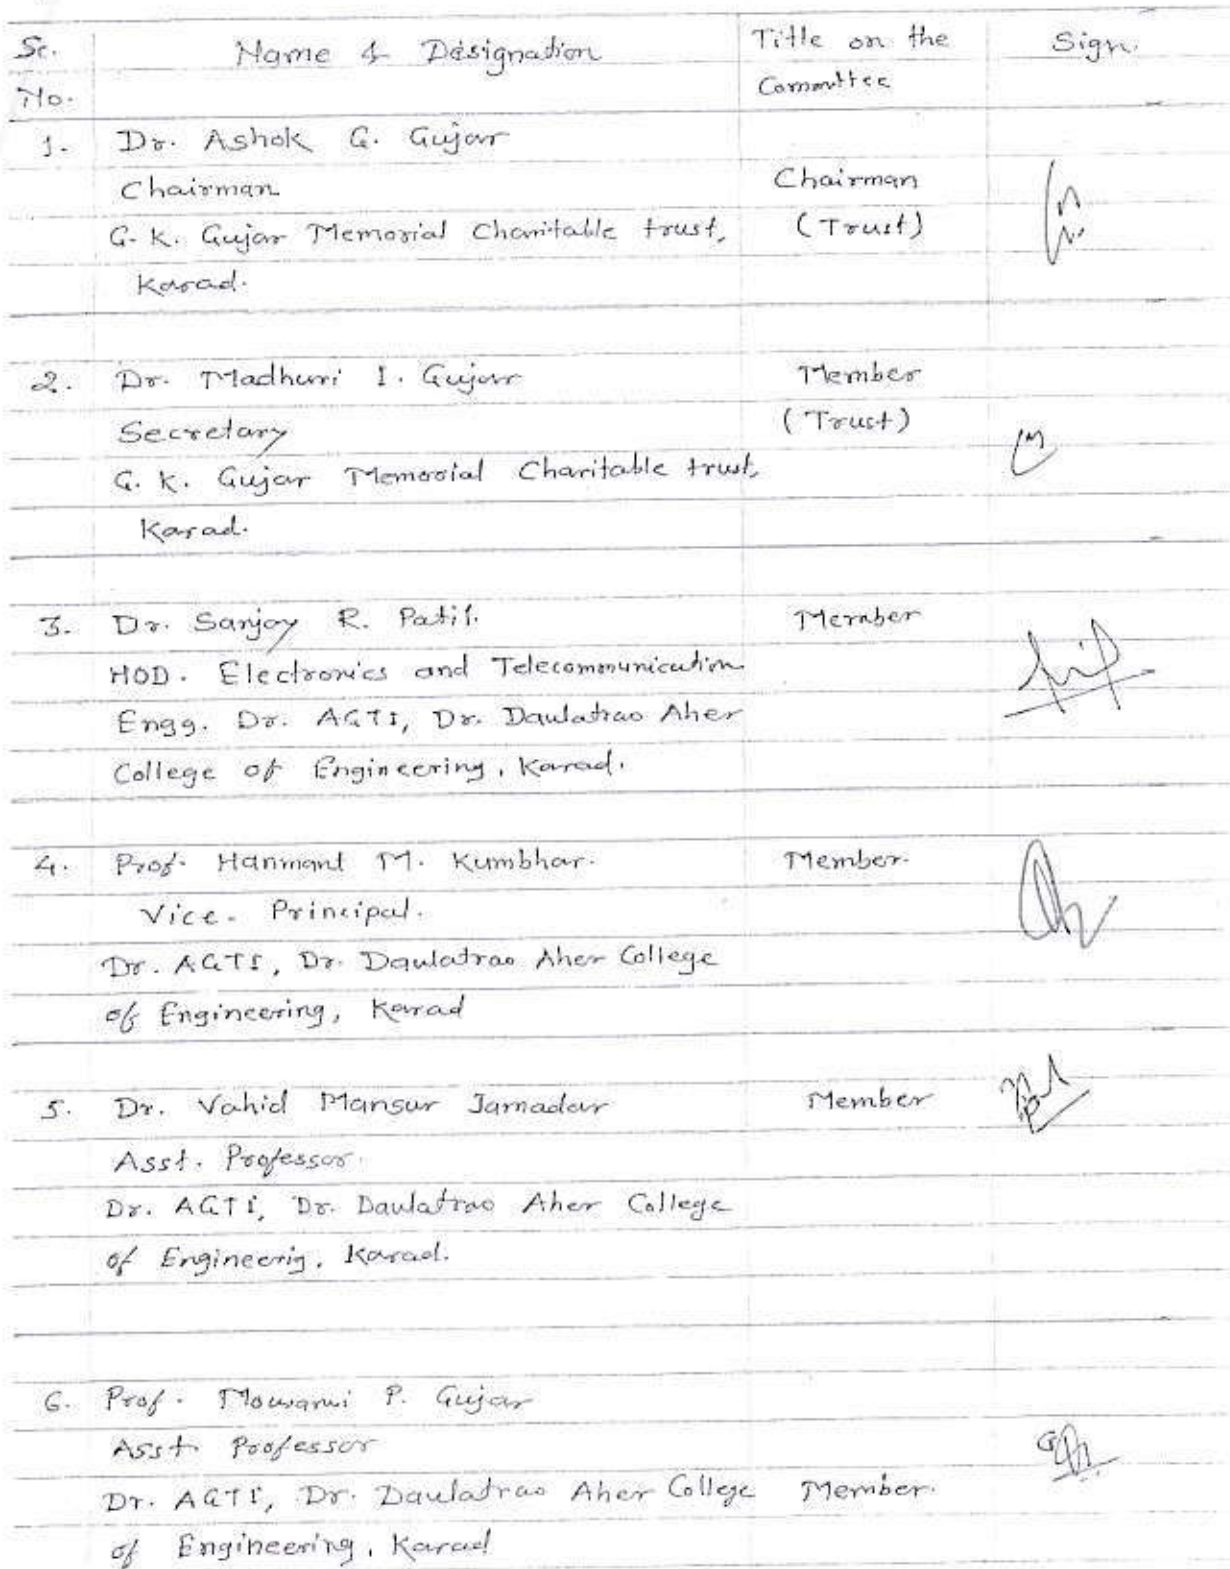 Sr. No. Name & Designation Title on the Committee Sign.
1. Dr. Ashok G. Gujar
Chairman Chairman
G. K. Gujar Memorial Charitable trust, (Trust)
Karad.
2. Dr. Madhuri I. Gujar Member
Secretary (Trust)
G. K. Gujar Memorial Charitable trust,
Karad.
3. Dr. Sanjay R. Patil. Member
HOD. Electronics and Telecommunication
Engg. Dr. AGTI, Dr. Daulatrao Aher
College of Engineering, Karad.
4. Prof. Hanmant M. Kumbhar. Member.
Vice. Principal.
Dr. AGTI, Dr. Daulatrao Aher College
of Engineering, Karad
5. Dr. Vahid Mansur Jamadar Member
Asst. Professor.
Dr. AGTI, Dr. Daulatrao Aher College
of Engineerig, Karad.
6. Prof. P. Gujar
Asst. Professor
Dr. AGTI, Dr. Daulatrao Aher College Member.
of Engineering, Karad